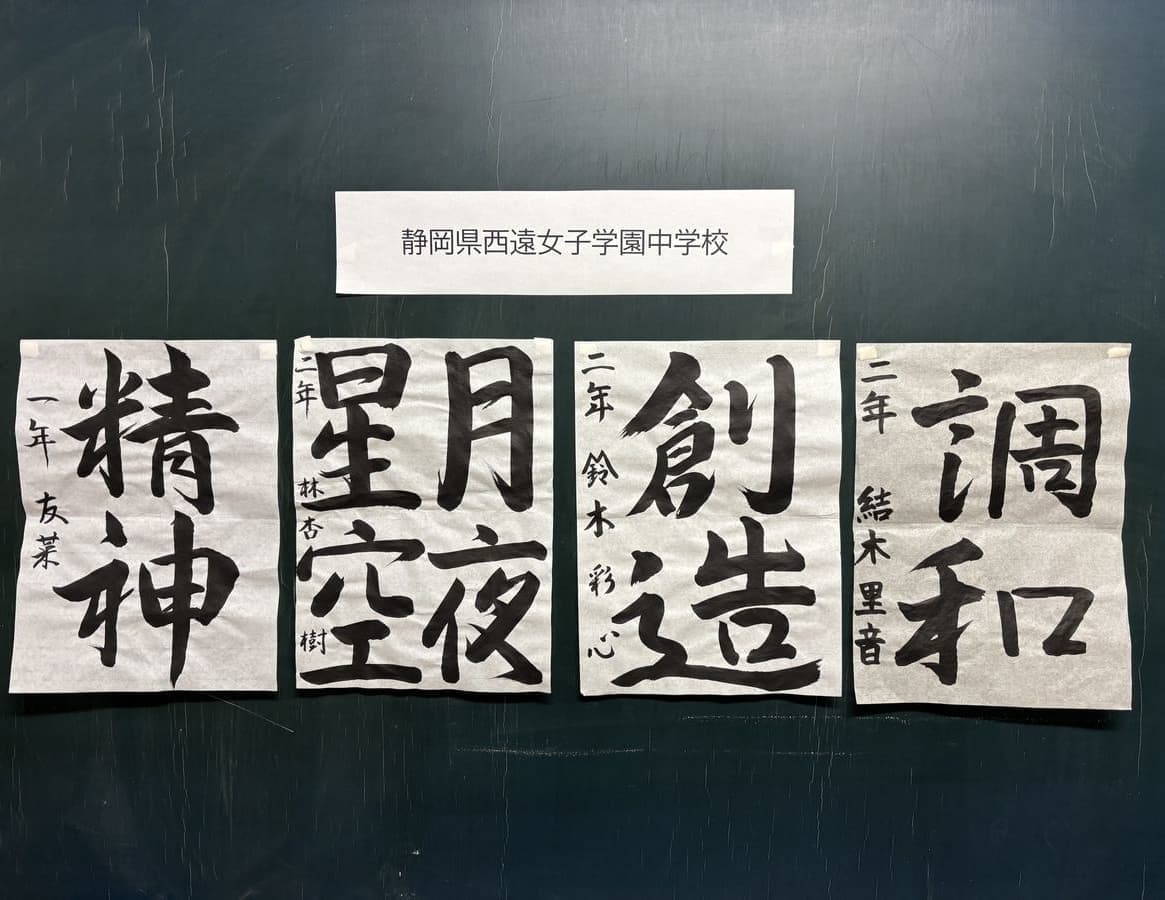 静岡県西遠女子学園中学校
調和
二年 結木里音
創造
二年 鈴木彩心
月夜
星空
二年 林杏樹
精神
一年 友菜